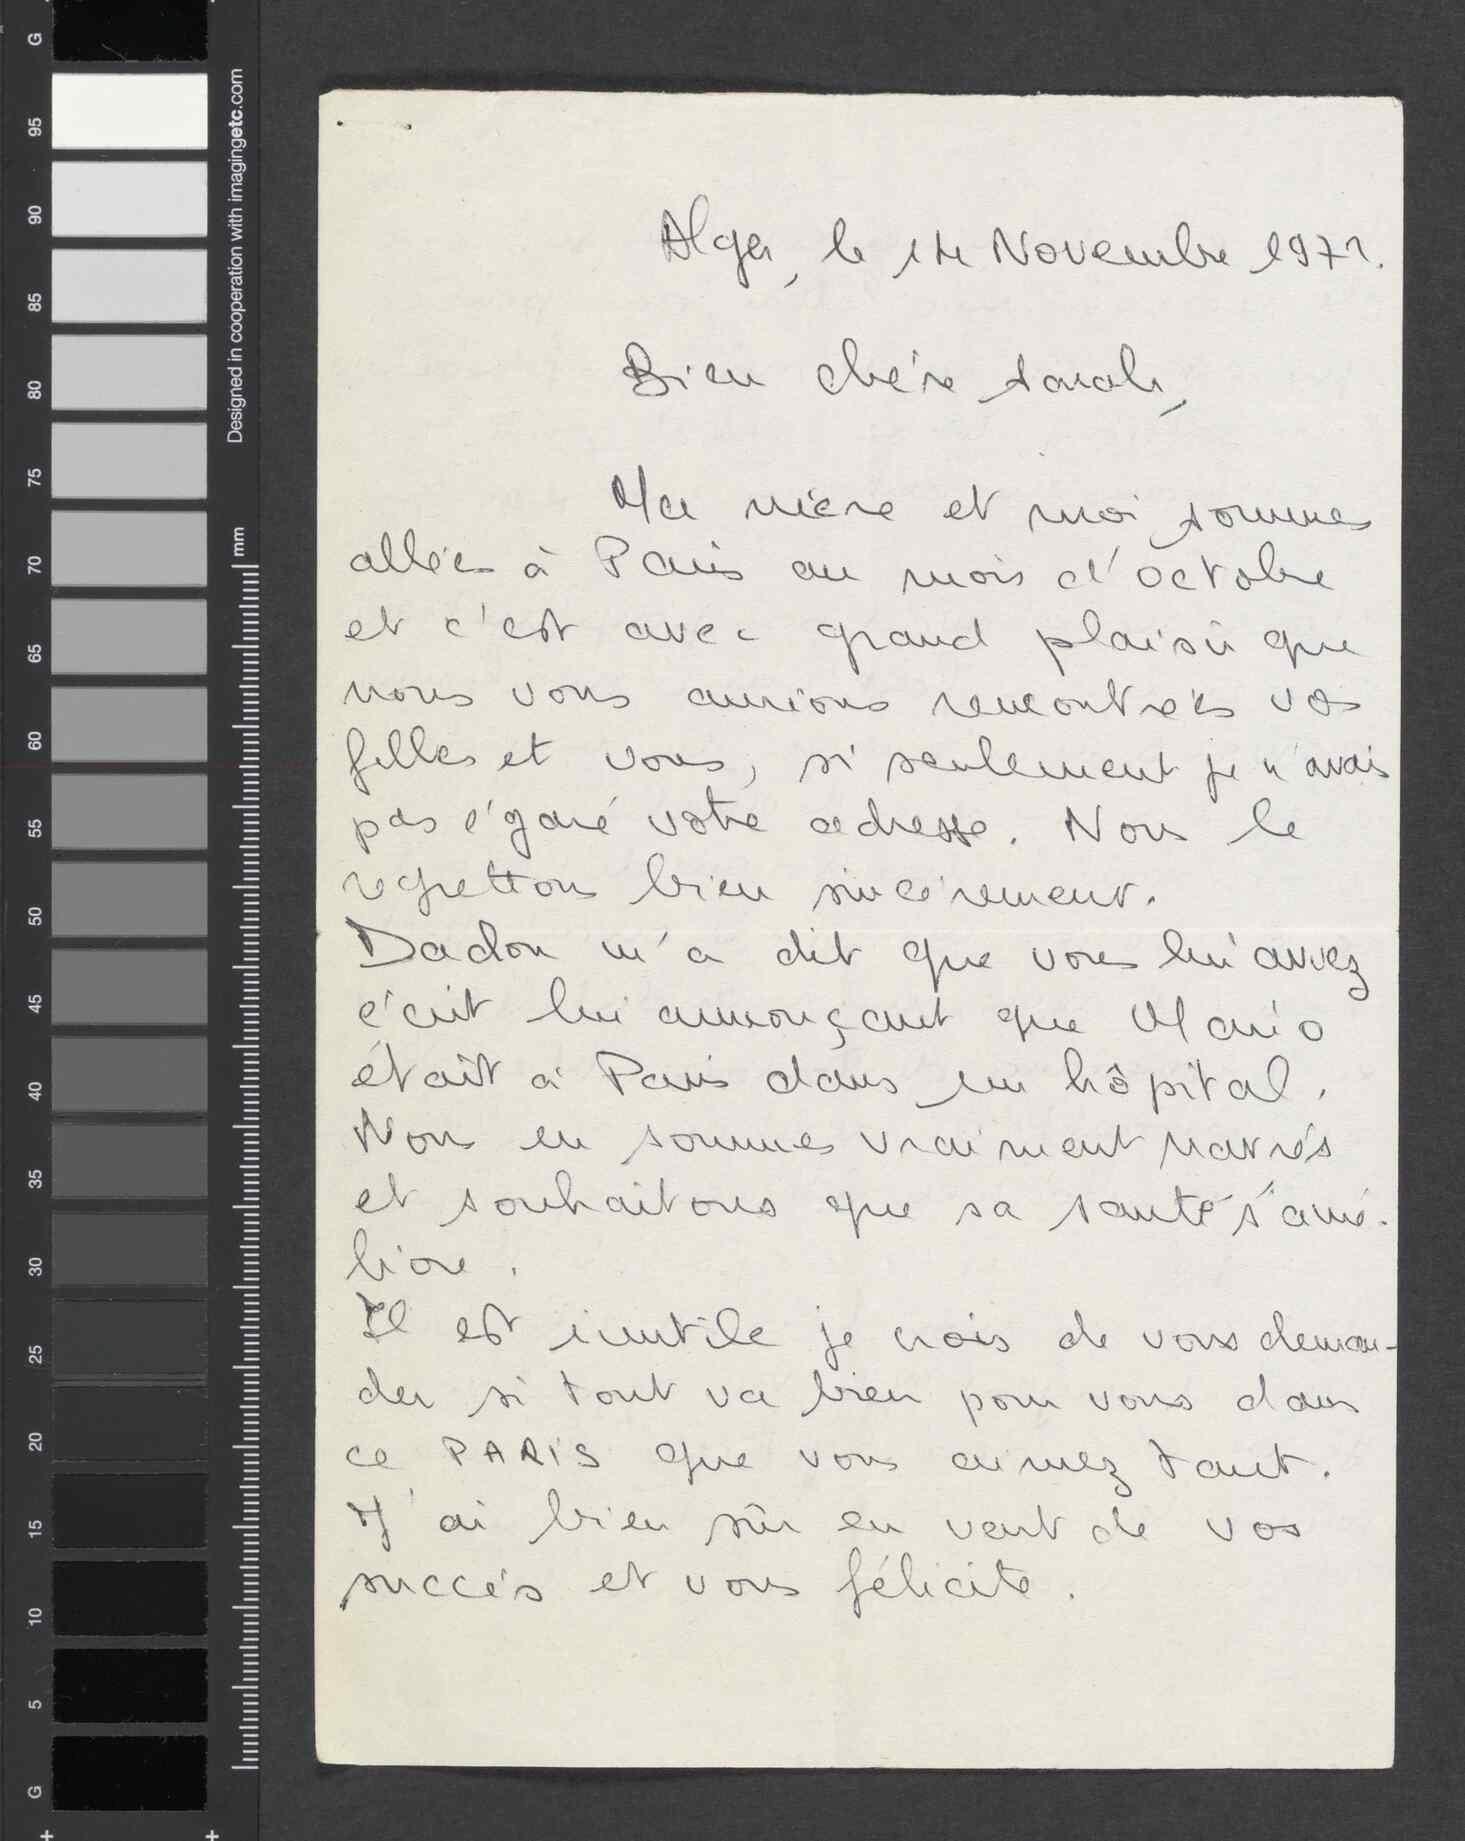 Alger, le 14 Novembre 1971.
Bien chère Sarah,
Ma mère et moi sommes
allées à Paris au mois d'octobre
et c'est avec grand plaisir que
nous vous aurions rencontrées vos
filles et vous, si seulement je n'avais
pas égaré votre adresse. Nous le
regrettons bien sincèrement.
Dadou m'a dit que vous lui aviez
écrit lui annonçant que Mario
était à Paris dans un hôpital.
Nous en sommes vraiment navrés
et souhaitons que sa santé s'amé-
liore.
Il est inutile je crois de vous deman-
der si tout va bien pour vous dans
ce PARIS que vous aimez tant.
J'ai bien sûr eu vent de vos
succès et vous félicite.
G
95
90
85
80
75
70
65
60
55
50
45
40
35
30
25
20
15
10
5
G
Designed in cooperation with imagingetc.com
mm